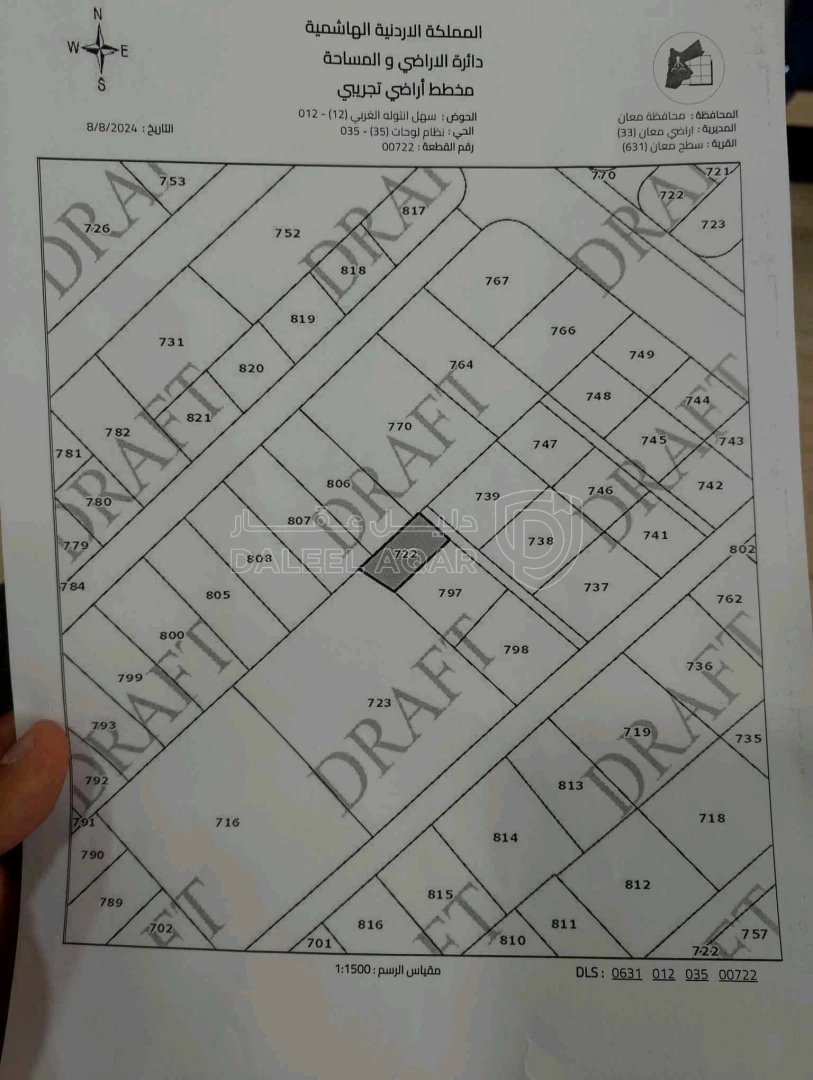 N
W E
S
المملكة الاردنية الهاشمية
دائرة الاراضي و المساحة
مخطط أراضي تجريبي
المحافظة : محافظة معان
المديرية : اراضي معان (33)
القرية : سطح معان (631)
الحوض : سهل انتوله الغربي (12) - 012
الحي : نظام لوحات (35) - 035
رقم القطعة : 00722
التاريخ : 8/8/2024
753
726
752
817
770
722
721
723
818
767
819
731
766
749
820
764
748
744
821
782
770
781
747
745
743
806
780
739
746
742
807
779
738
741
722
803
802
784
805
797
737
762
800
798
736
799
723
793
719
735
792
813
791
716
718
790
814
812
789
815
816
811
702
701
810
757
722
DRAFT
DRAFT
DRAFT
DRAFT
DRAFT
DRAFT
DRAFT
DRAFT
DRAFT
دليل عقار
DALEEL AQAR
مقياس الرسم : 1:1500
DLS : 0631 012 035 00722